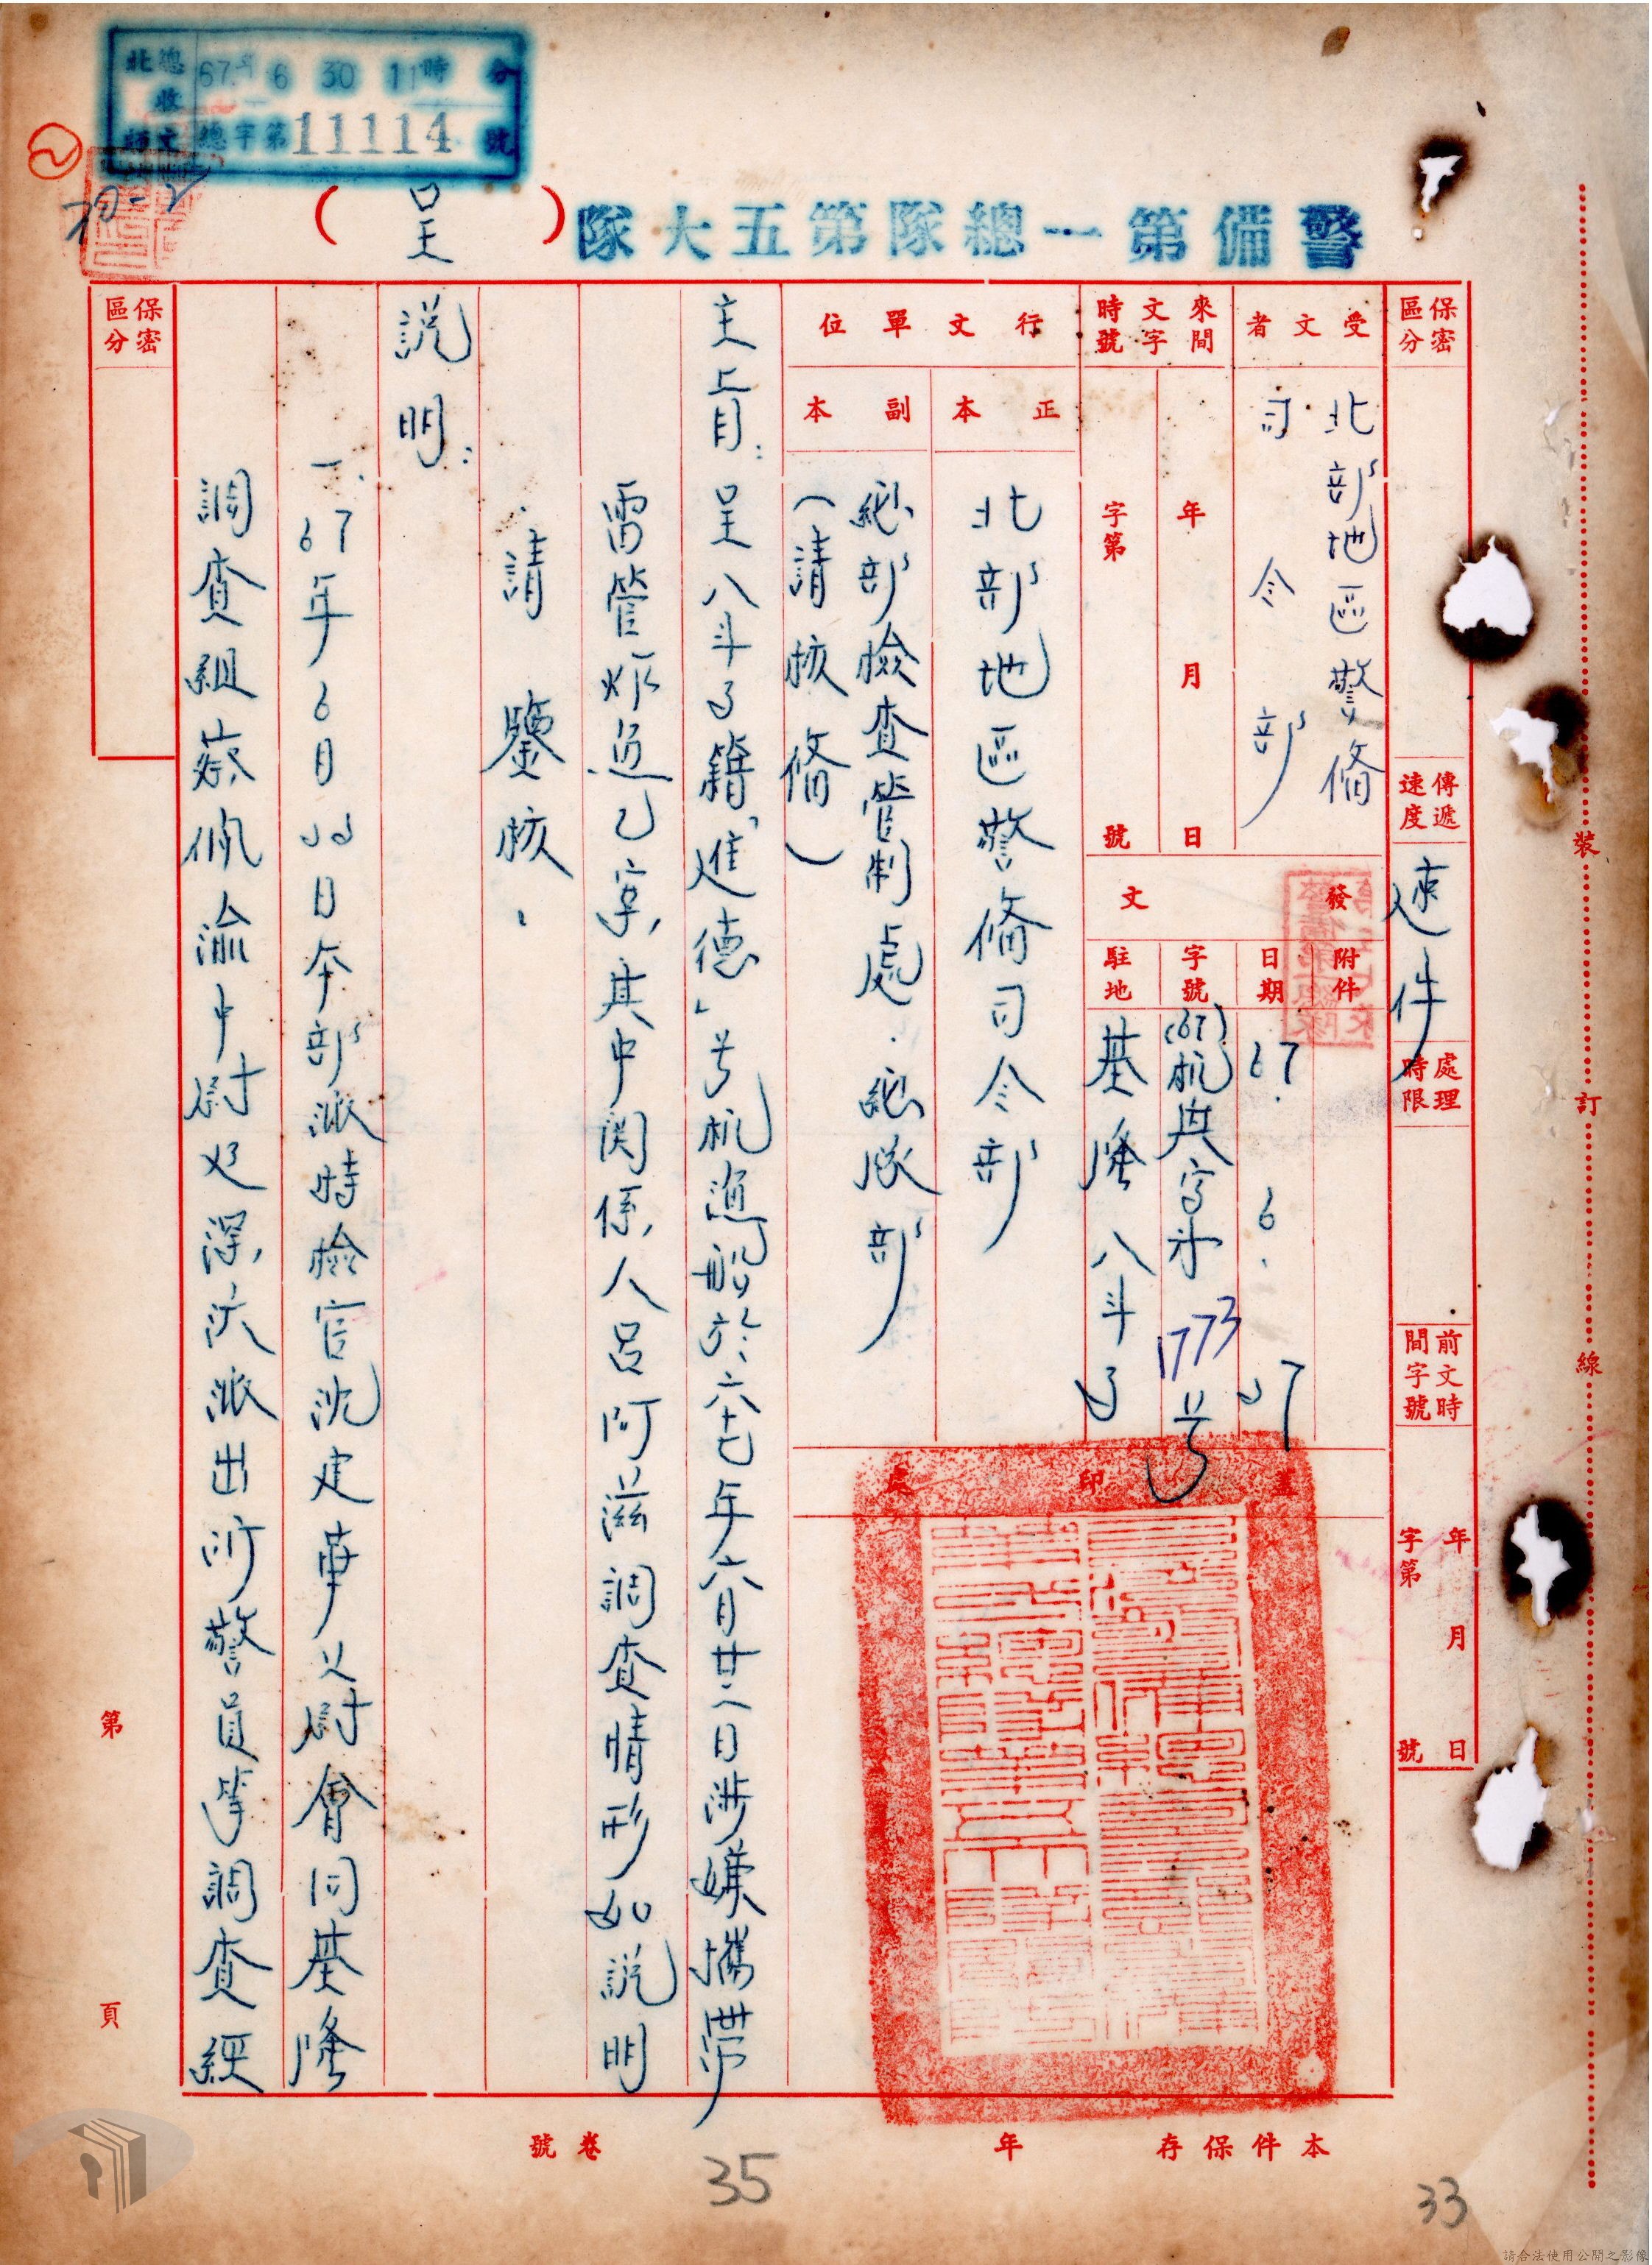 北總收文 67年6 30 11時 分
總字第11114號
警備第一總隊第五大隊（呈）
保密區分
傳遞速度
速件
處理時限
前文時間字號
年 月 日
字第 號
受文者
北部地區警備
司令部
來文時間字號
年 月 日
字第 號
發文
附件
日期
67. 6. 27
字號
(67)杭典字第1773号
駐地
基隆八斗子
行文單位
正本
北部地區警備司令部
副本
總部檢查管制處．總隊部
（請核備）
蓋印處
主旨：呈八斗子籍「進德」号机漁船於六七年六月廿二日涉嫌攜帶
雷管炸逃乙案，其中関係人呂阿滋調查情形如說明
．請 鑒核．
說明：
一、67年6月22日本部派時檢官沈建華乂尉會同基隆
調查組蔡佩渝中尉及深澳派出所警員等調查經
保密區分
第 頁
本件保存 年
卷號
35
33
裝 訂 線
請合法使用公開之影像